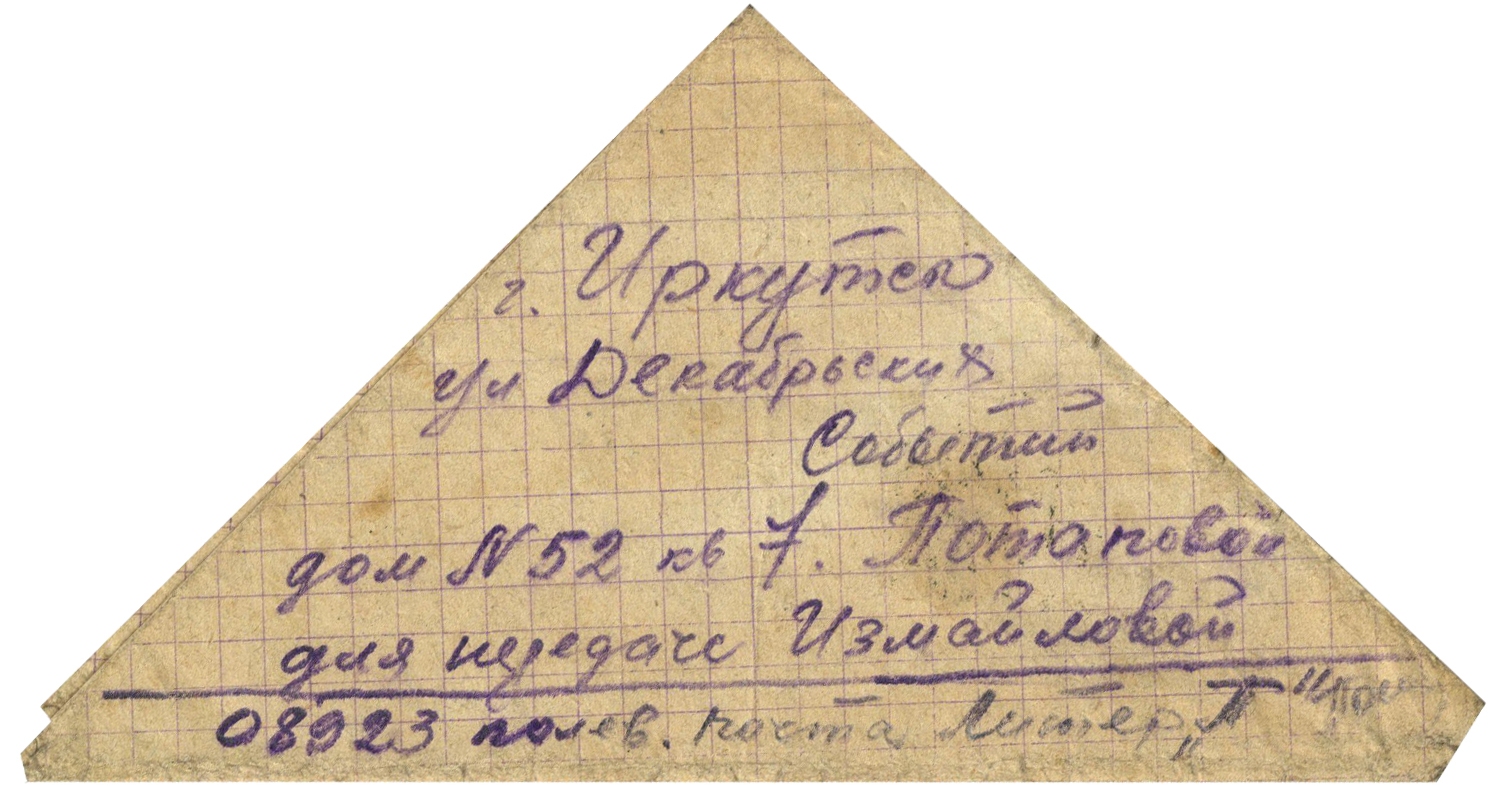 г. Иркутск
ул Декабрьских
Событий
дом N 52 кв 7. Потаповой
для передаче Измайловой
08923 полев. почта Литер „П"